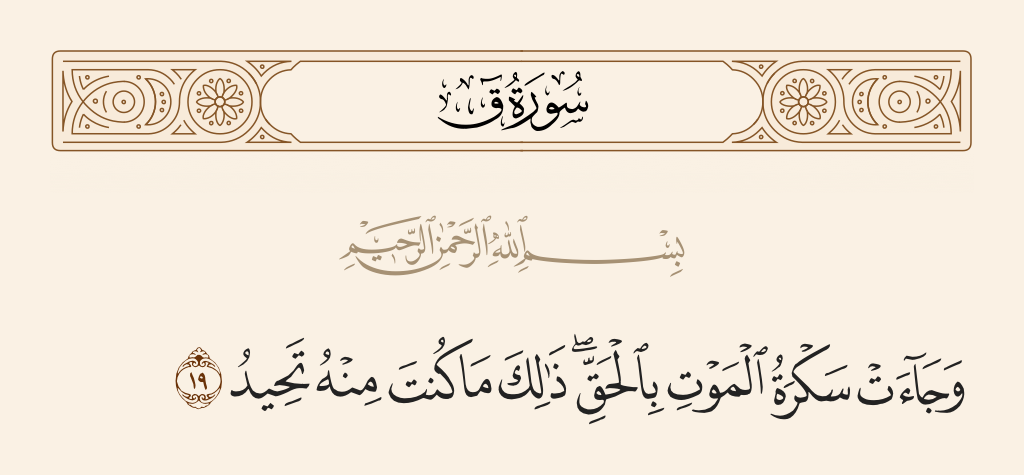 سُورَةُ ق
بِسْمِ ٱللَّهِ ٱلرَّحْمَٰنِ ٱلرَّحِيمِ
وَجَآءَتْ سَكْرَةُ ٱلْمَوْتِ بِٱلْحَقِّ ۖ ذَٰلِكَ مَا كُنتَ مِنْهُ تَحِيدُ ١٩